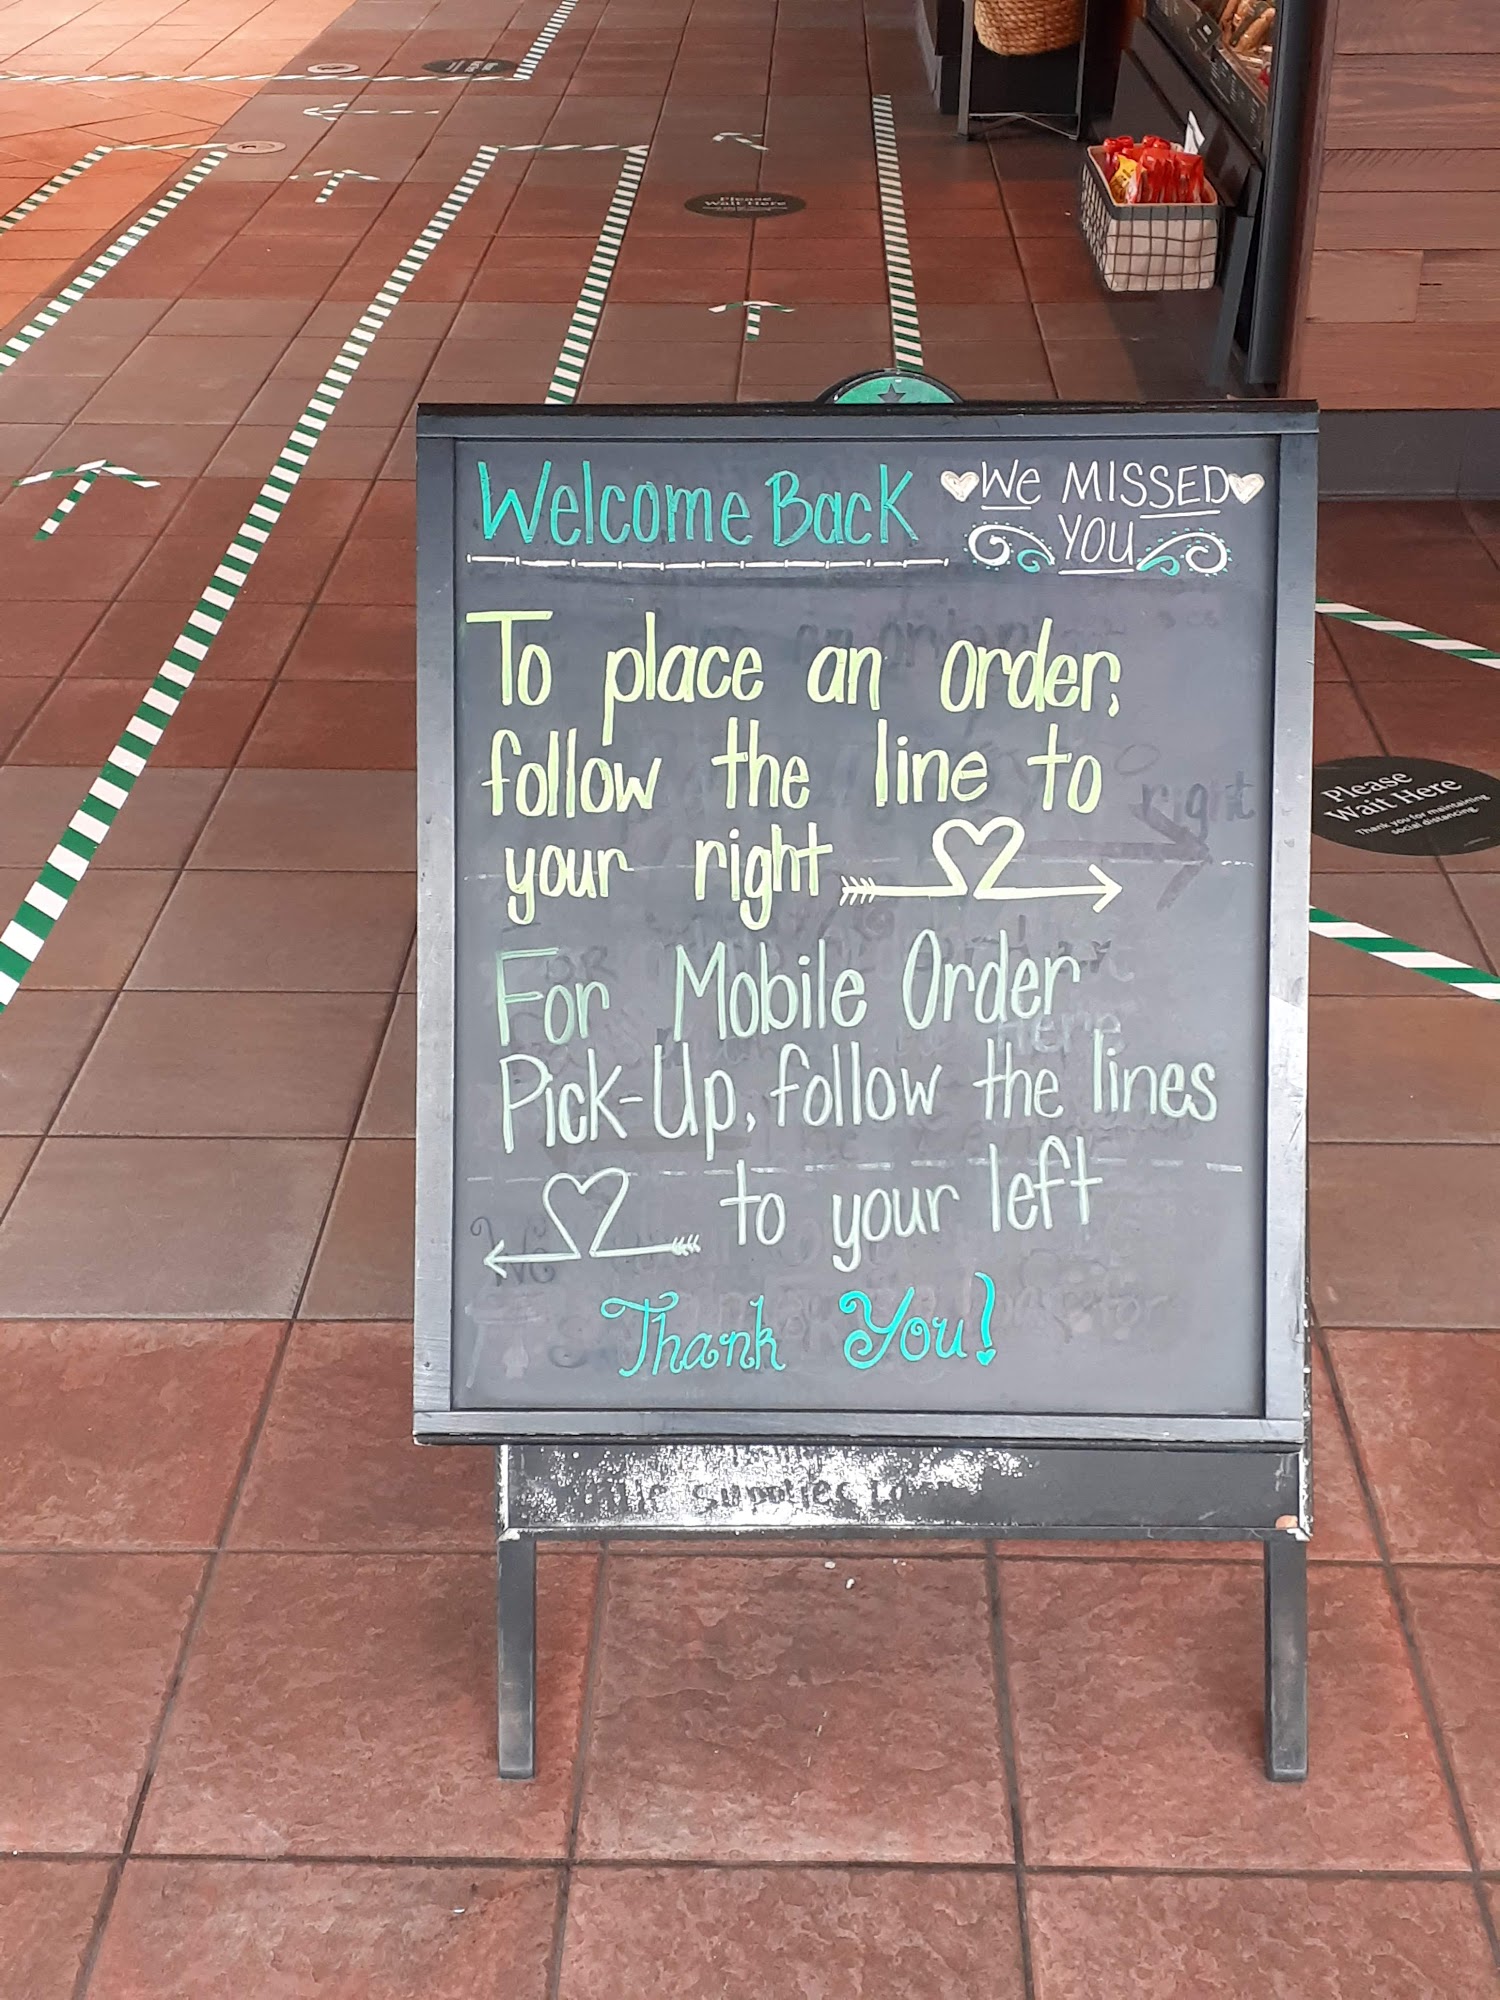 Please
Wait Here
Welcome Back
We MISSED
YOU
To place an order,
follow the line to
your right
For Mobile Order
Pick-Up, follow the lines
to your left
Thank You!
Please
Wait Here
Thank you for maintaining
social distancing.